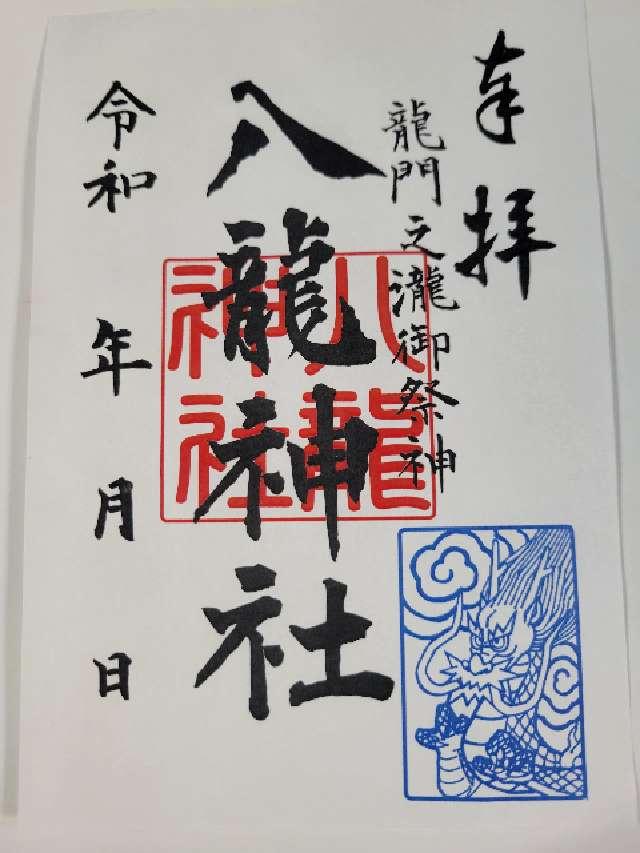 奉拝
龍門之瀧御祭神
八龍神社
八龍神社
令和 年 月 日